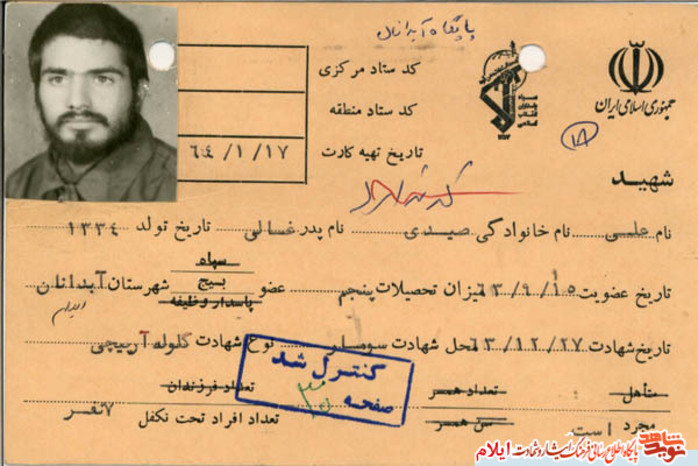 پایگاه آبدانان
جمهوری اسلامی ایران
کد ستاد مرکزی
کد ستاد منطقه
تاریخ تهیه کارت ۶۴/۱/۱۷
۱۸
شهید
نام علی نام خانوادگی صیدی نام پدر غسالی تاریخ تولد ۱۳۳۴
تاریخ عضویت ۶۳/۹/۱۵ میزان تحصیلات پنجم عضو سپاه بسیج پاسدار وظیفه شهرستان آبدانان
تاریخ شهادت ۶۳/۱۲/۲۷ محل شهادت سومار نوع شهادت گلوله آرپیچی
متأهل تعداد همسر تعداد فرزندان
مجرد است سن همسر تعداد افراد تحت تکفل ۷نفر
کنترل شد
صفحه ۳۰
نوید شاهد
پایگاه اطلاع رسانی فرهنگ ایثار و شهادت ایلام